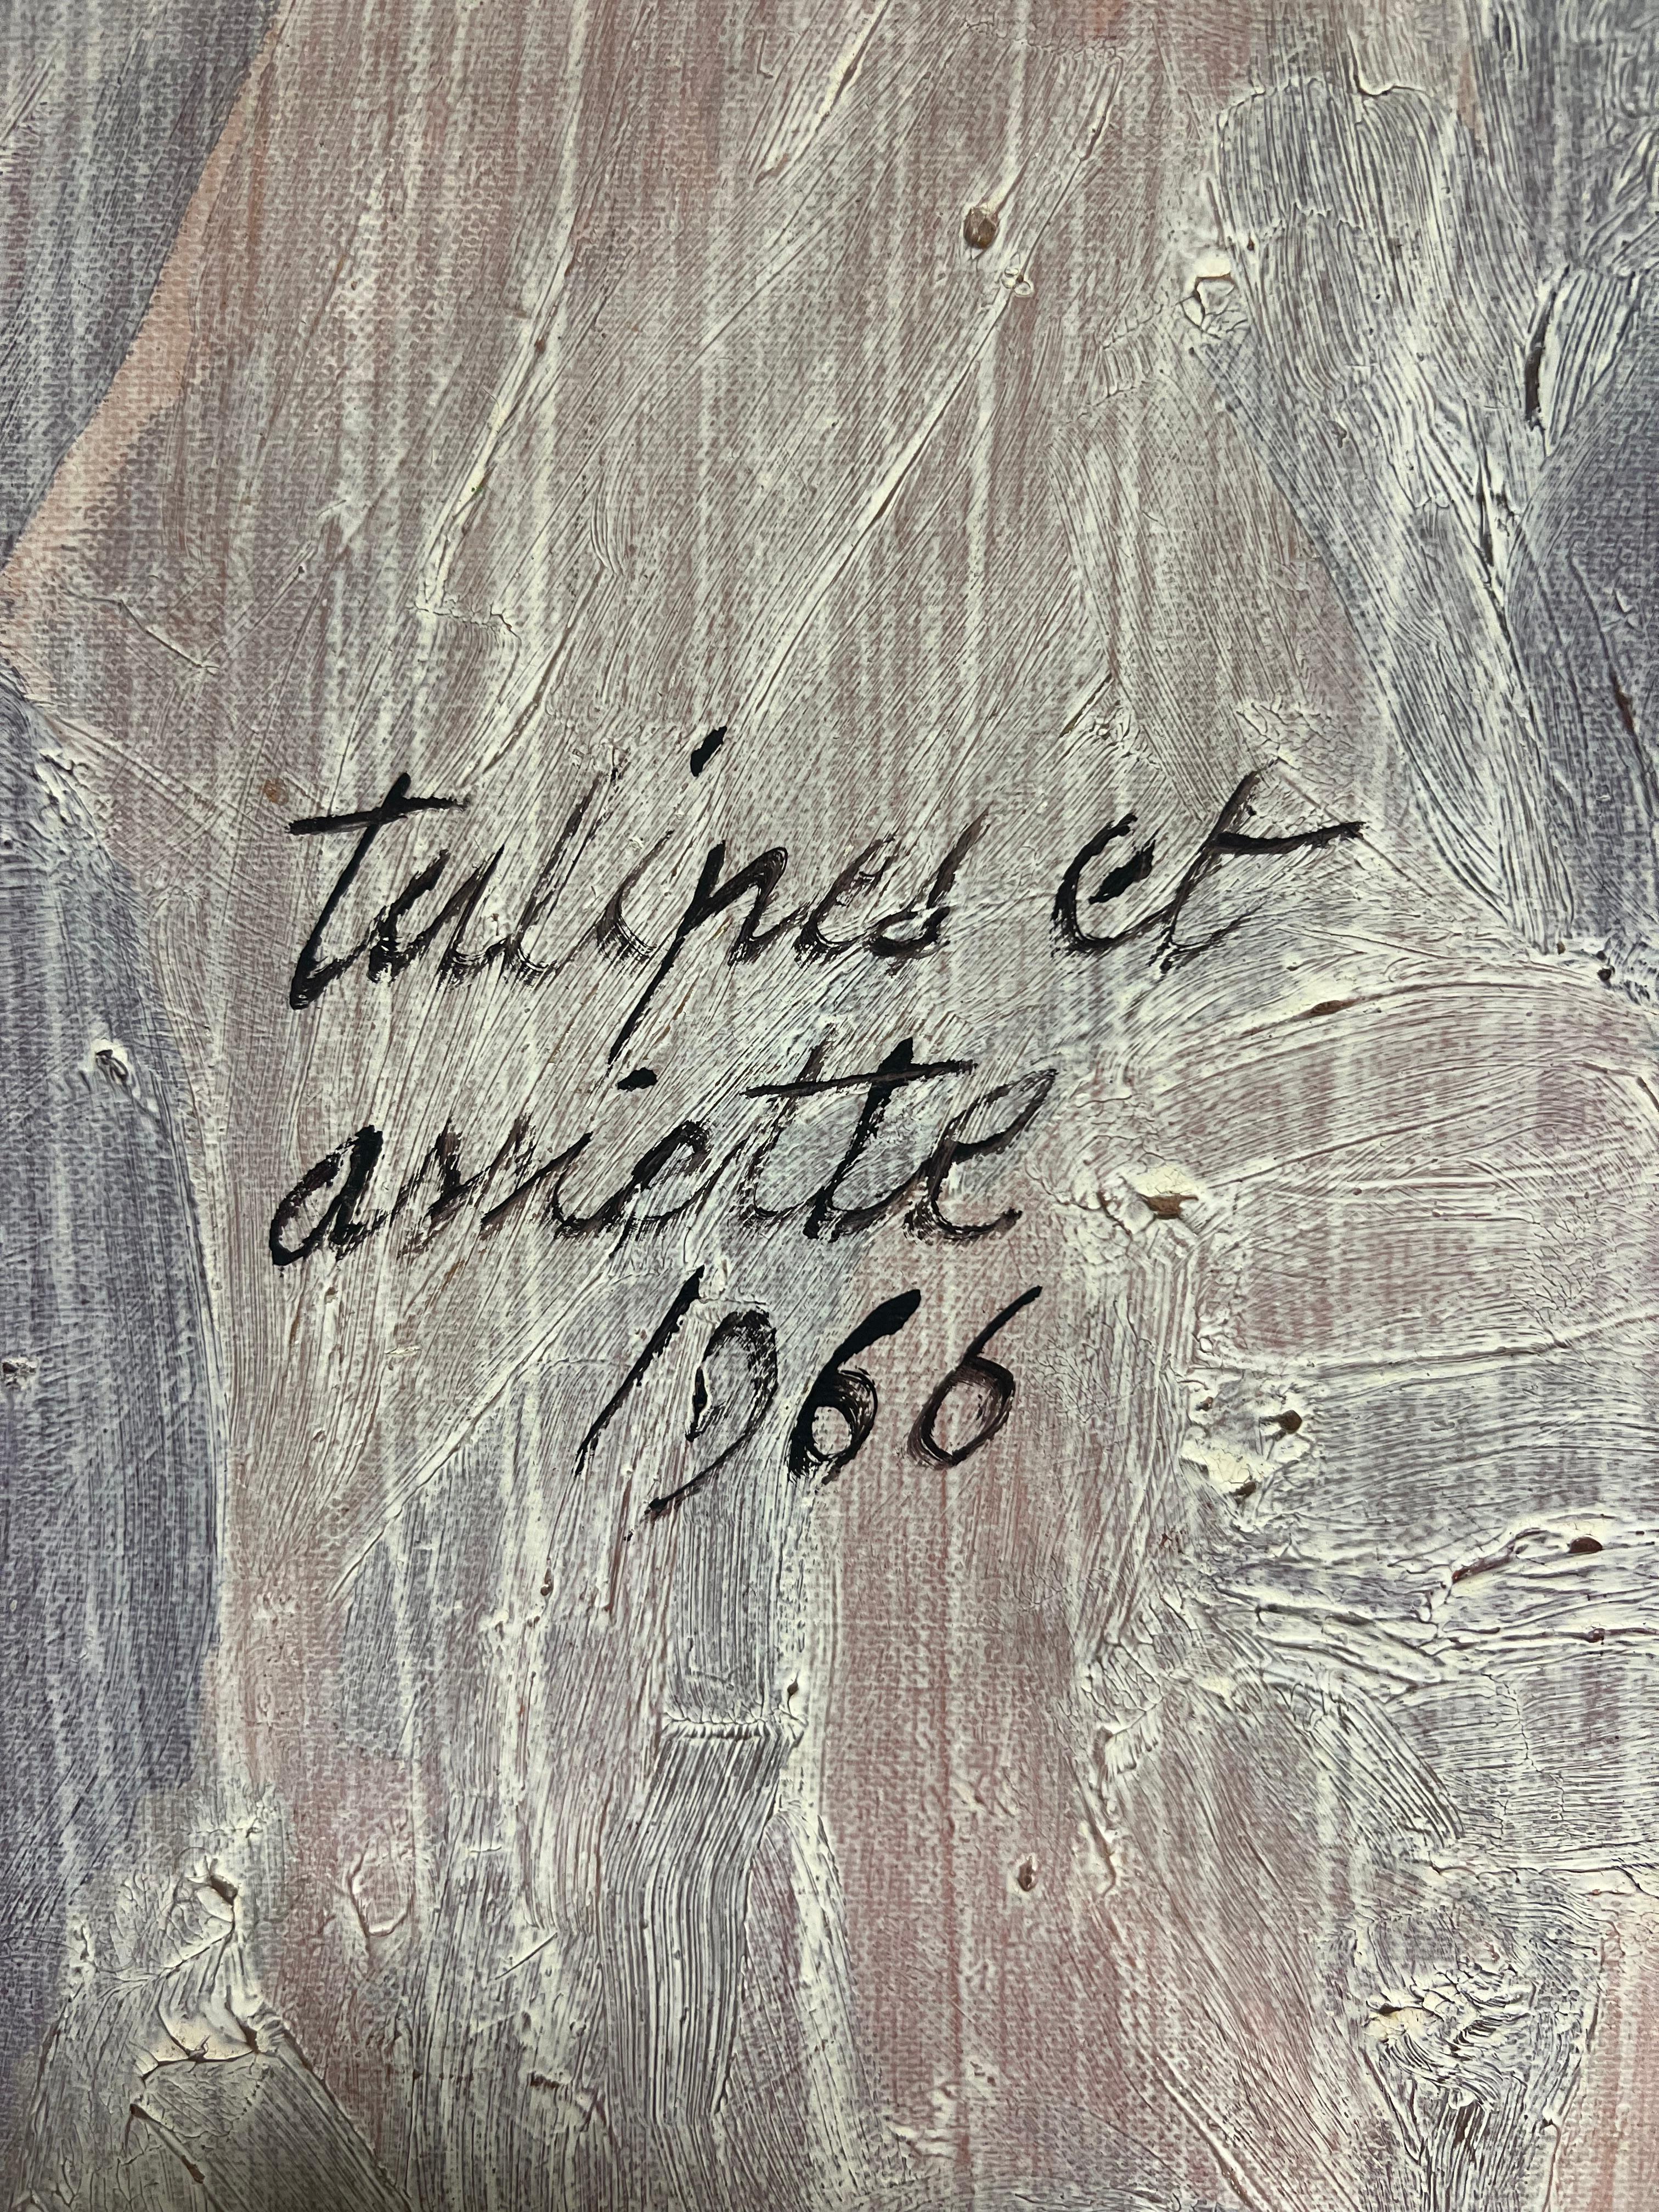 tulipes et
assiette
1966